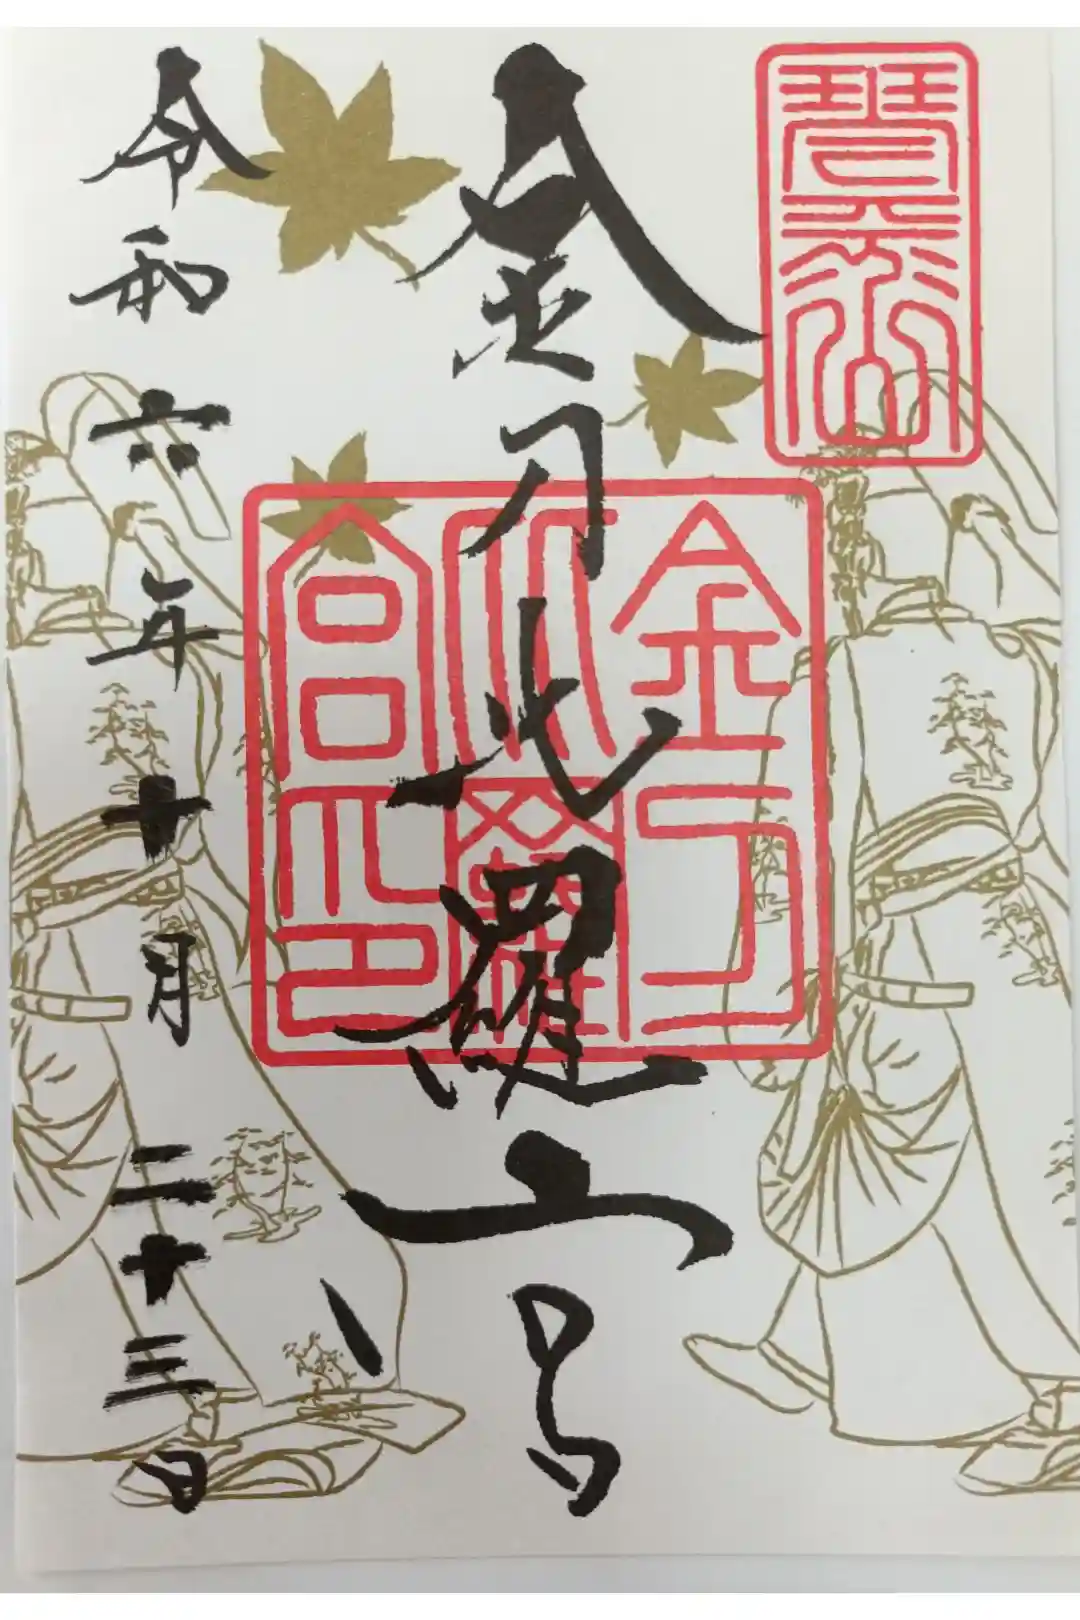 琴平山
金刀比羅宮
金刀比羅宮印
令和六年十月二十三日